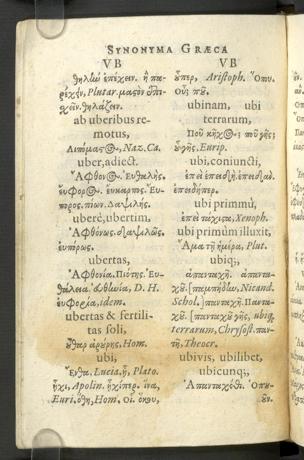 SYNONYMA GRÆCA
VB
θηλὼ ἐπέχειν. ἢ πα-
ρέχειν, Plutar. μαζὸν ἐπι-
χεῖν. θηλάζειν.
ab uberibus re-
motus,
Λιπόμας Θ-, Naz. Ca.
uber, adiect.
ἌφθονΘ-. Εὐθαλής.
εὔφορΘ-. εὔκαρπος. Εὔ-
πορος. πίων. Δαψιλής.
uberè, ubertim,
Ἀφθόνως. δαψιλῶς.
εὐπόρως.
ubertas,
Ἀφθονία. Πιότης. Εὐ-
θάλεια. εὐθλωία, D. H.
εὐφορία, idem.
ubertas & fertili-
tas soli,
οὖθαρ ἀρούρης, Hom.
ubi,
Ἔνθα. Lucia. ᾗ, Plato.
ἧχι, Apolin. ἵνα,
Euri. ὅθι, Hom. Οἷ. ὅκου,
VB
Aristoph. Ὅπου.
οὗ. ποῦ.
ubinam, ubi
terrarum,
Ποῦ ποῦ γῆς;
γῆς, Eurip.
ubi, coniuncti,
ἐπεὶ ἐπειδή. ἐπειδὰν.
ἐπειδήπερ.
ubi primmũ,
ἐπεὶ τάχιστα, Xenoph.
ubi primùm illuxit,
Ἅμα τῇ ἡμέρᾳ, Plut.
ubiq;,
ἀπανταχῆ. ἁπαντα-
χῆ. [παμπήδην, Nicand.
Schol.] πανταχῆ. Παντα-
χοῦ. [πανταχοῦ γῆς, ubiq;
terrarum, Chrysost. παν-
τῆ, Theocr.
ubivis, ubilibet,
ubicunq;,
Ἁπανταχόθι. Ὅπου-
οῦν.